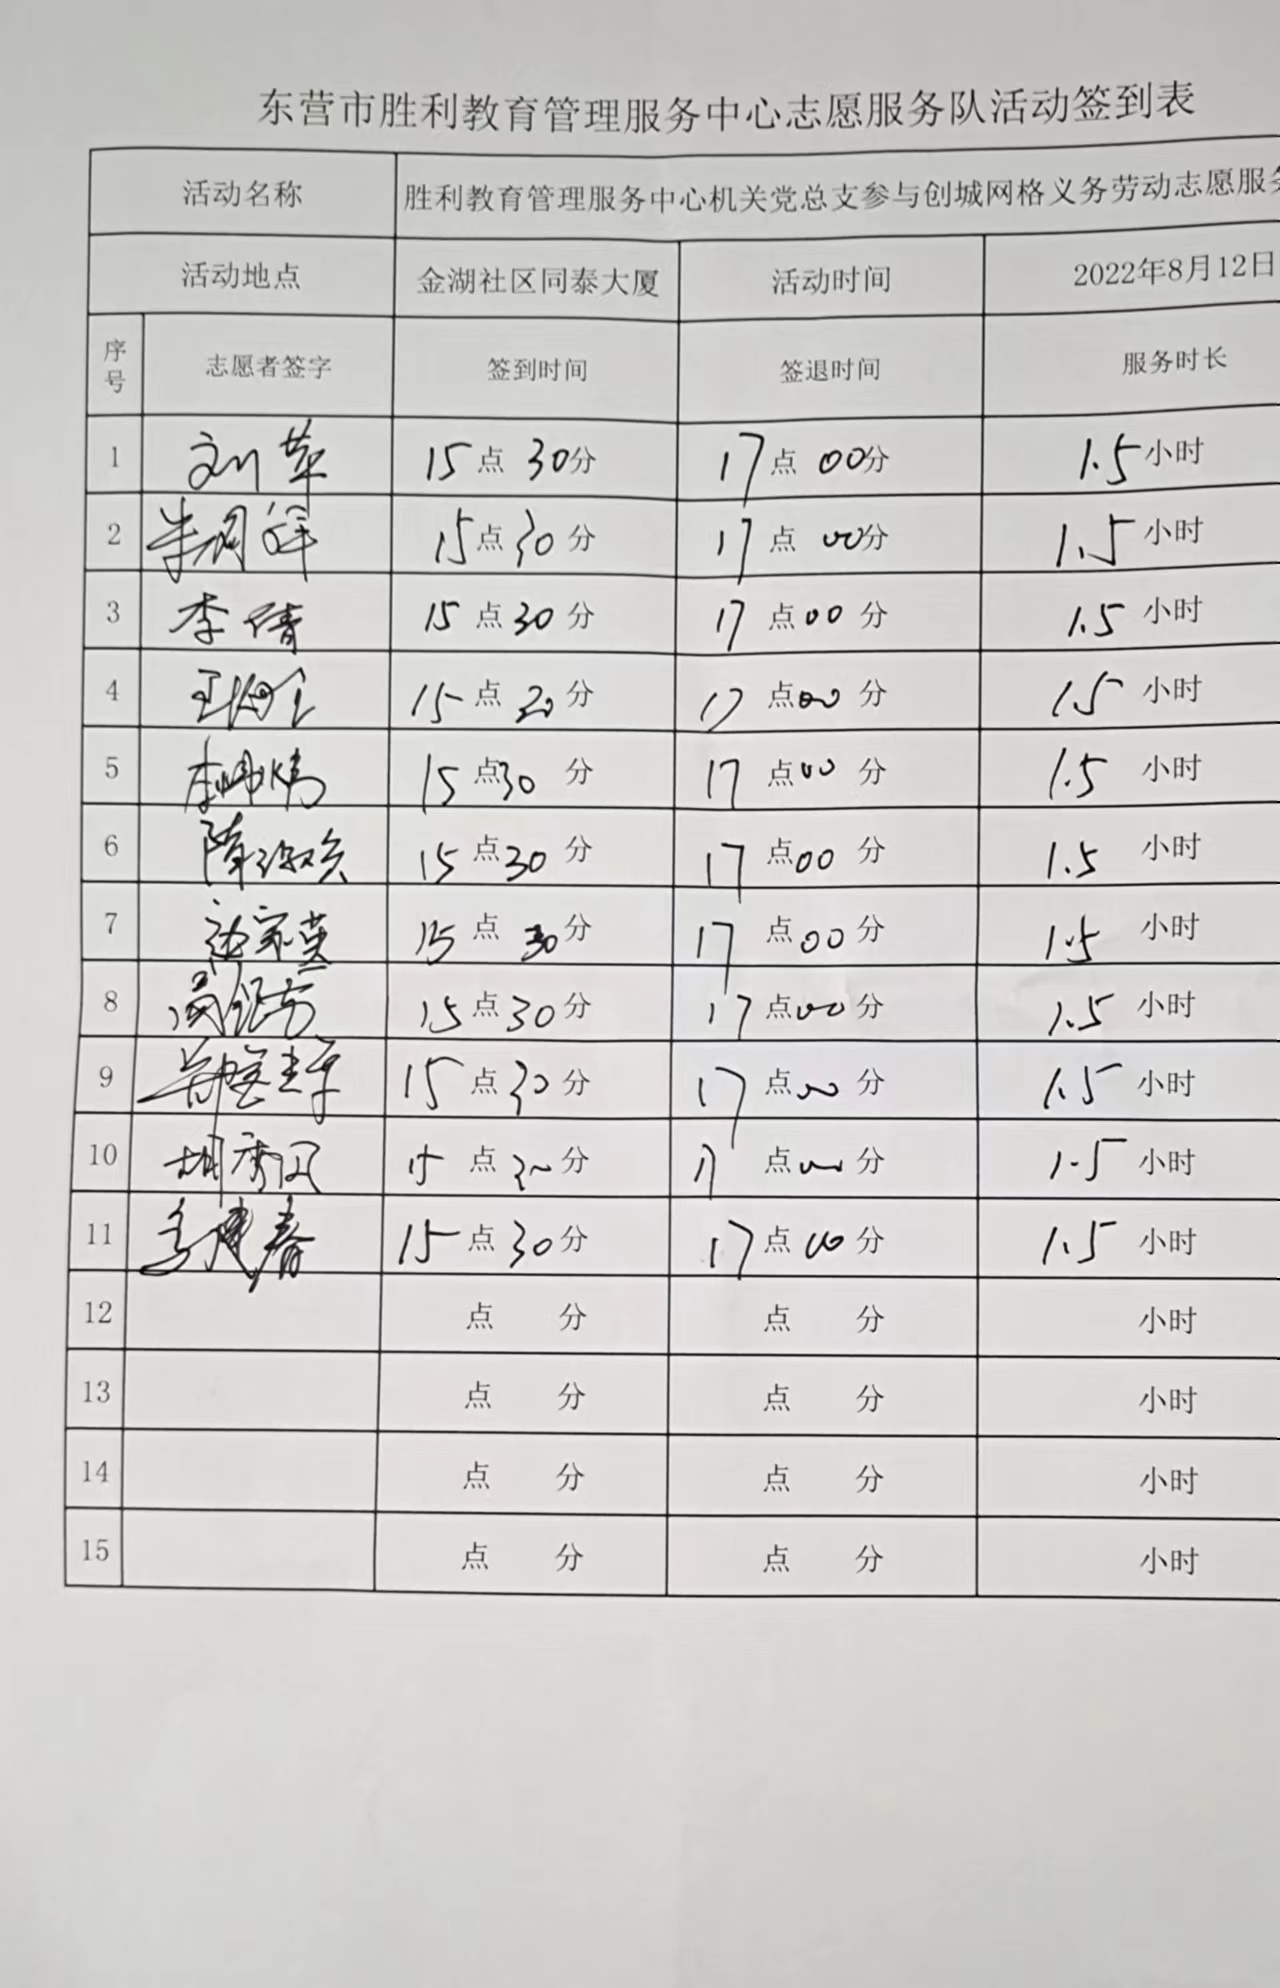 东营市胜利教育管理服务中心志愿服务队活动签到表
活动名称 胜利教育管理服务中心机关党总支参与创城网格义务劳动志愿服务
活动地点 金湖社区同泰大厦 活动时间 2022年8月12日
序号 志愿者签字 签到时间 签退时间 服务时长
1 刘苹 15点30分 17点00分 1.5小时
2 15点30分 17点00分 1.5小时
3 李倩 15点30分 17点00分 1.5小时
4 15点30分 17点00分 1.5小时
5 15点30分 17点00分 1.5小时
6 15点30分 17点00分 1.5小时
7 15点30分 17点00分 1.5小时
8 15点30分 17点00分 1.5小时
9 15点30分 17点00分 1.5小时
10 15点30分 17点00分 1.5小时
11 15点30分 17点00分 1.5小时
12 点 分 点 分 小时
13 点 分 点 分 小时
14 点 分 点 分 小时
15 点 分 点 分 小时